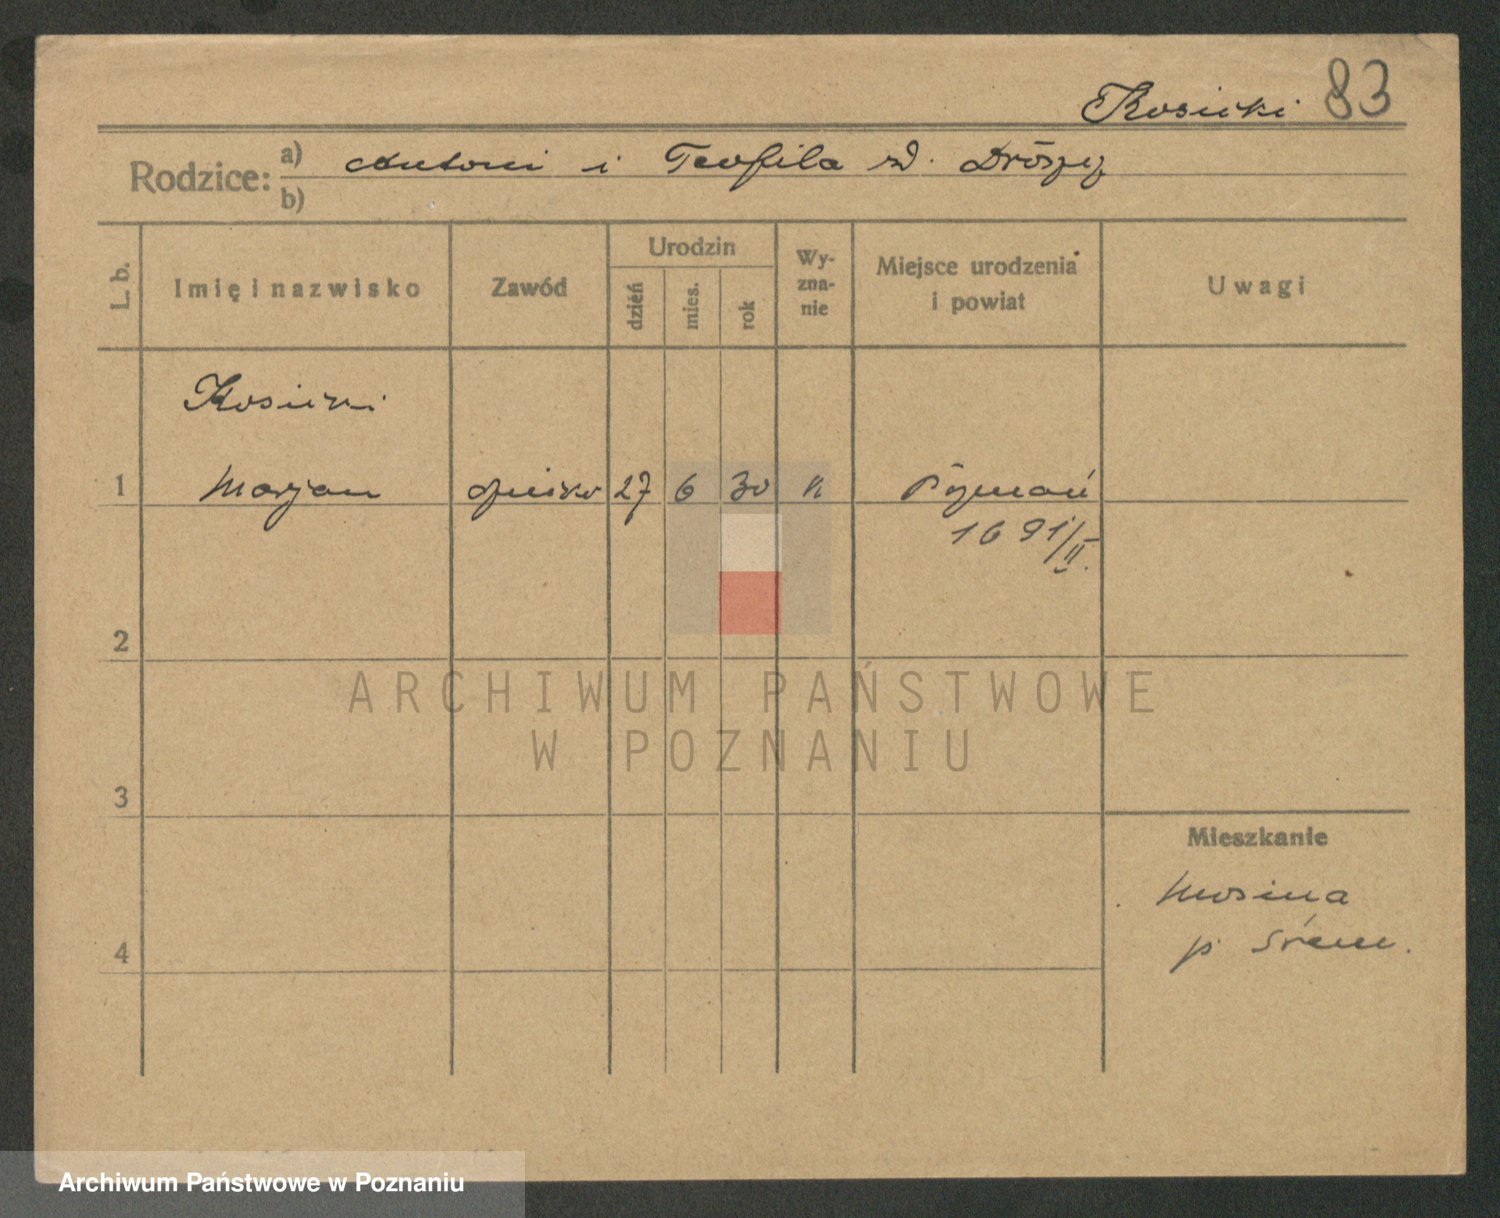 Kosicki 83
Rodzice: a) Antoni i Teofila zd.
b)
L. b. Imię i nazwisko Zawód Urodzin dzień mies. rok Wyznanie Miejsce urodzenia i powiat Uwagi
Kosicki
1 Marjan 27 6 30 k Poznań
1691/II.
2
ARCHIWUM PAŃSTWOWE
W POZNANIU
3
Mieszkanie
Mosina
p Śrem.
4
Archiwum Państwowe w Poznaniu